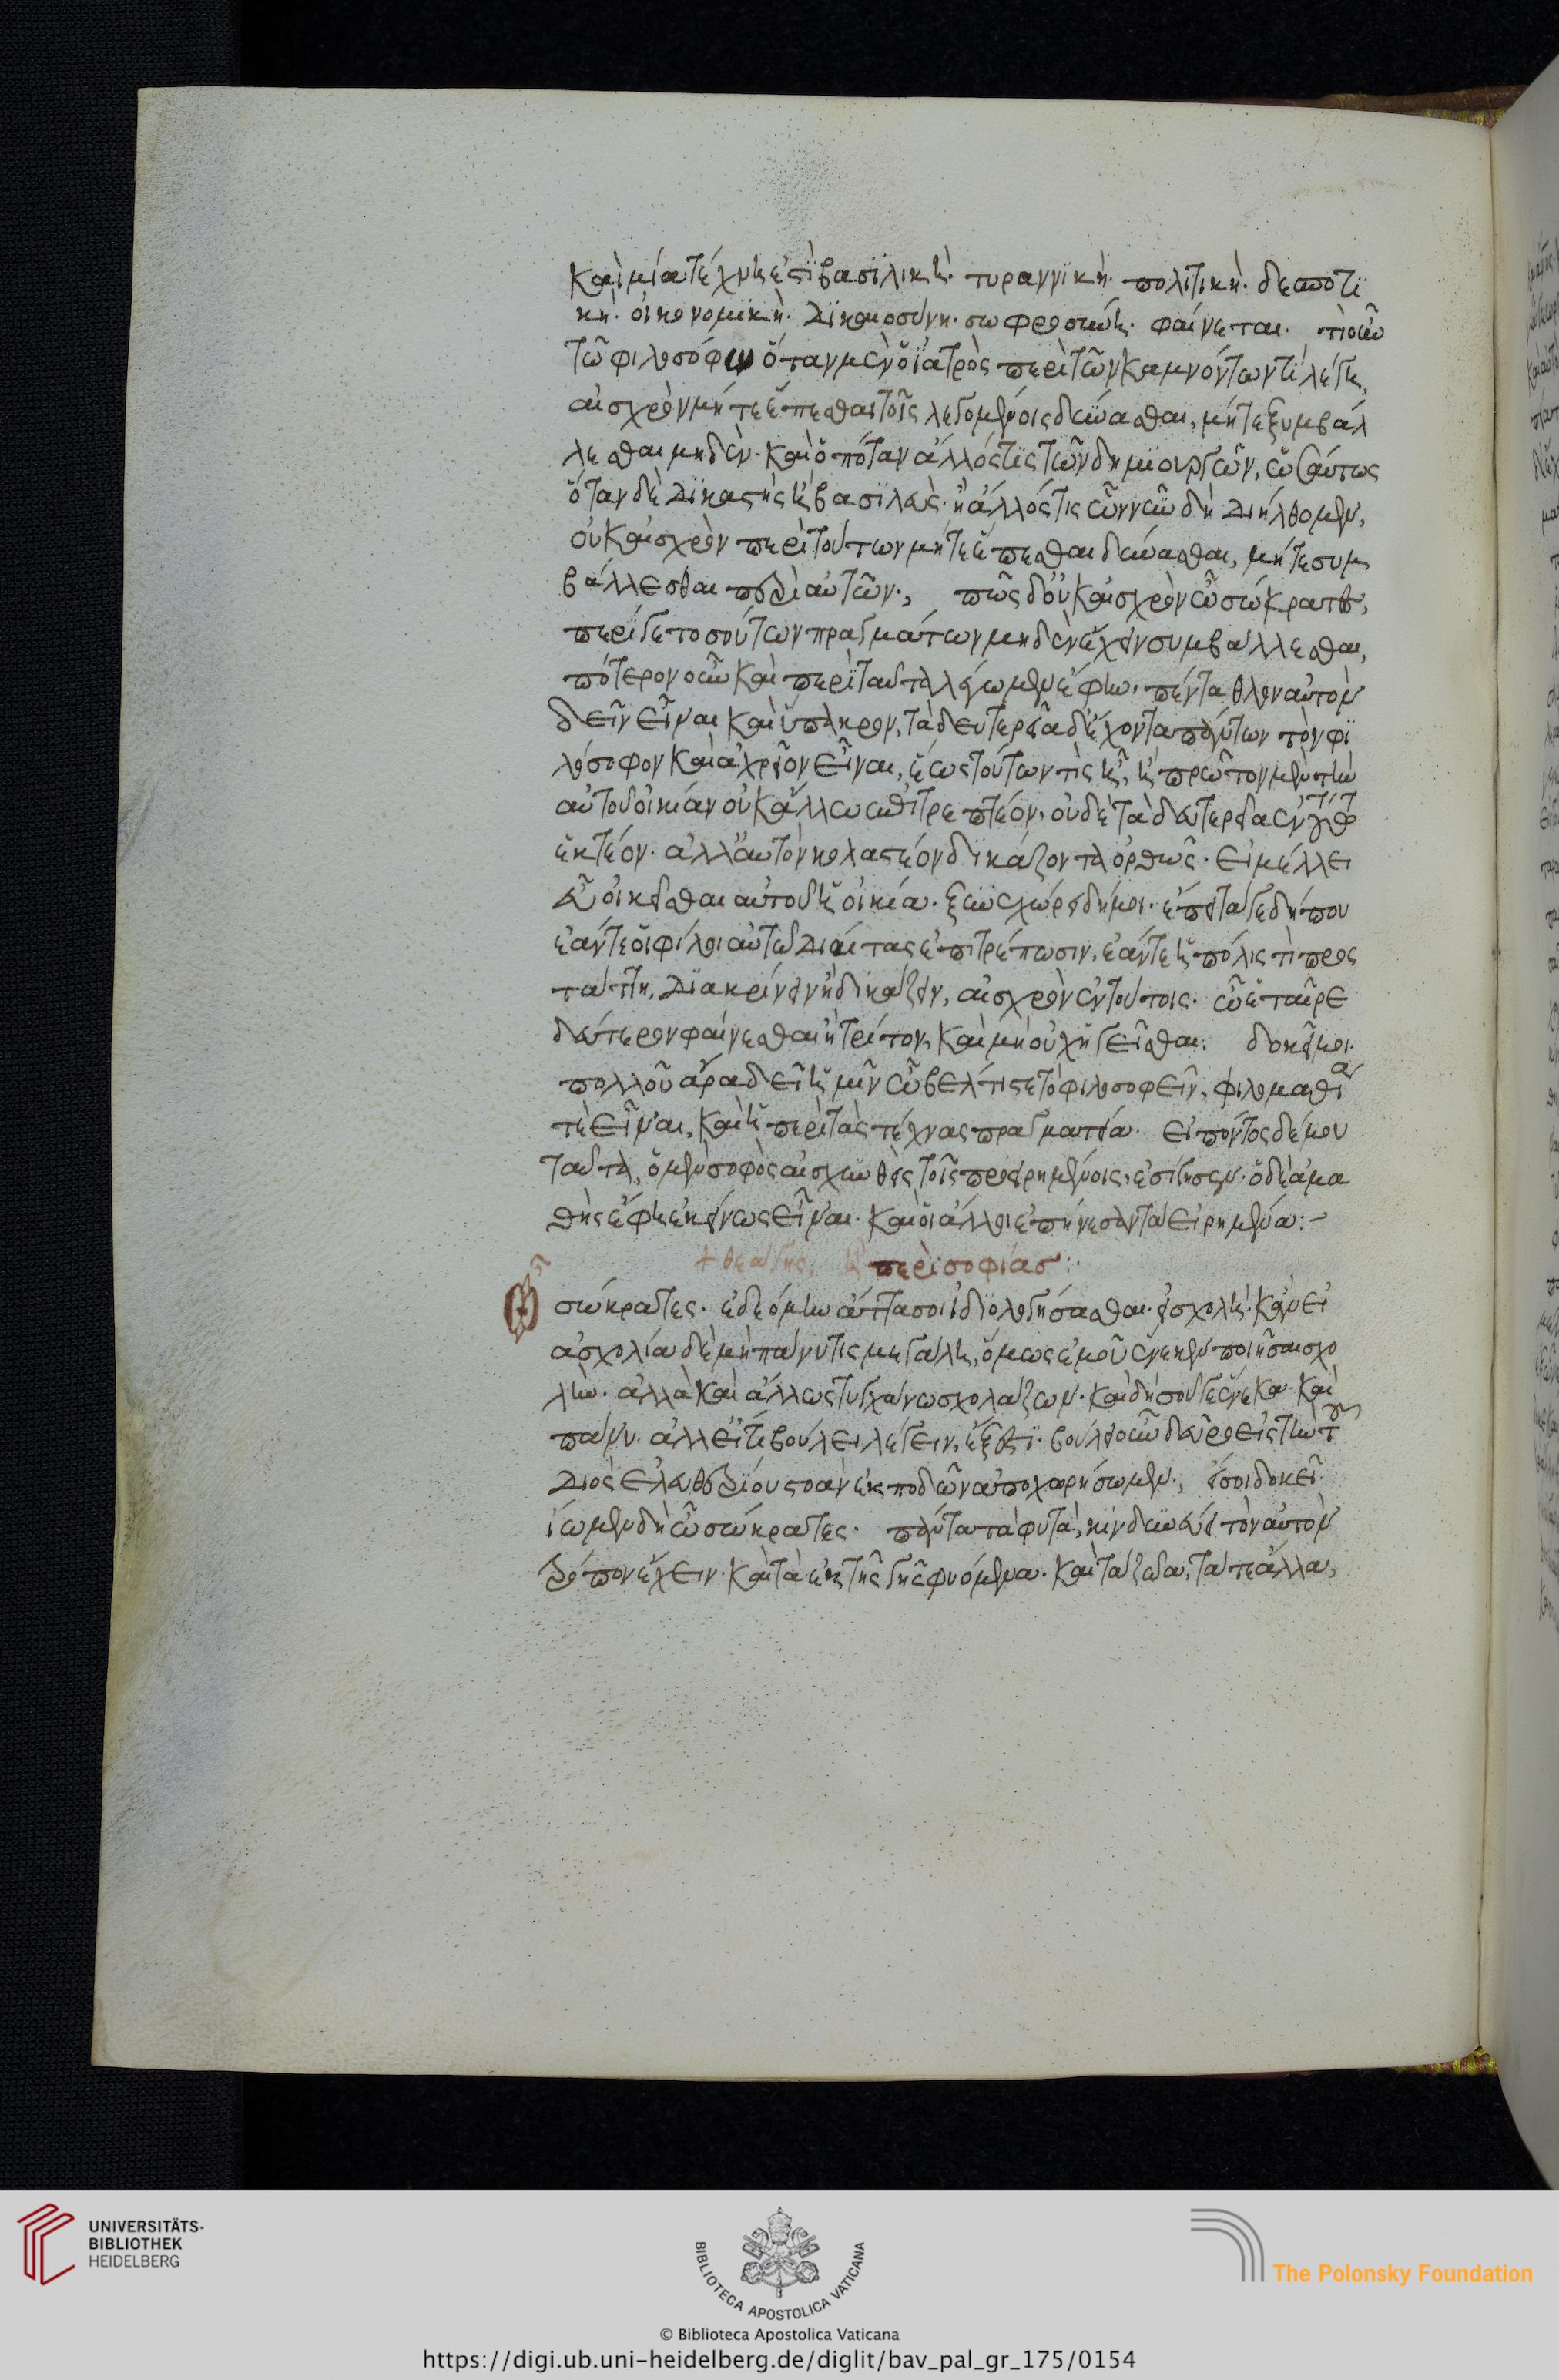 καὶ μία τέχνη ἐστὶ βασϊλικὴ· τυραννϊκὴ· πολιτικὴ· δεσποτϊ
κὴ· οἰκονομϊκὴ· δϊκαιοσύνη· σωφροσύνη· φαίνεται· τί οὖν
τῶ φιλοσόφω ὅταν μὲν ὁ ἰατρὸς περὶ τῶν καμνόντων τὶ λέγη,
αἰσχρὸν μήτε ἕπεσθαι τοῖς λεγομένοις δύνασθαι, μήτε ξυμβάλ
λεσθαι μηδὲν· καὶ ὁπόταν ἄλλός τϊς τῶν δημϊουργῶν, ὡσαύτως
ὅταν δὲ δϊκαστὴς ἢ βασϊλεὺς· ἢ ἄλλός τις ὧν νῦν δὴ διήλθομεν,
οὐκ αἰσχρὸν περὶ τούτων μήτε ἕπεσθαι δύνασθαι, μήτε συμ
βάλλεσθαι περὶ αὐτῶν·, πῶς δ' οὐκ αἰσχρὸν ὦ σώκρατες,
περί γε τοσούτων πραγμάτων μηδὲν ἔχειν συμβάλλεσθαι,
πότερον οὖν καὶ περὶ ταῦτα λέγωμεν ἔφην, πένταθλον αὐτὸν
δεῖν εἶναι καὶ ὕπακρον, τὰ δευτερεῖα δ' ἔχοντα πάντων τὸν φϊ
λόσοφον καὶ ἀχρεῖον εἶναι, ἕως τούτων τὶς ἦ, ἢ πρῶτον μὲν τὴν
αὑτοῦ οἰκίαν οὐκ ἄλλω ἐπιτρεπτέον, οὐδὲ τὰ δευτερεῖα ἐν τούτω
ἑκτέον· ἀλλ' αὐτὸν κολαστέον δϊκάζοντα ὀρθῶς· εἰ μέλλει
εὖ οἰκεῖσθαι αὐτοῦ ἡ οἰκία· ξυνεχώρει δή μοι· ἔπειτά γε δήπου
ἐάν τε οἱ φίλοι αὐτῶ διαίτας ἐπιτρέπωσιν, ἐάν τε ἡ πόλις τὶ προς
τάττη, δϊακρίνειν ἢ δϊκάζειν, αἰσχρὸν ἐν τούτοις· ὦ ἑταῖρε
δεύτερον φαίνεσθαι ἢ τρίτον, καὶ μὴ οὐχ ἡγεῖσθαι. δοκεῖ μοι·
πολλοῦ ἄρα δεῖ ἡμῖν ὦ βέλτιστε τὸ φιλοσοφεῖν, φιλομαθία
τὲ εἶναι, καὶ ἡ περὶ τὰς τέχνας πραγματεία· εἰπόντος δέ μου
ταῦτα, ὁ μὲν σοφὸς αἰσχυνθεὶς τοῖς προειρημένοις, ἐσίγησεν· ὁ δὲ ἀμα
θὴς ἔφη ἐκείνως εἶναι· καὶ οἱ ἄλλοι ἐπήνεσαν τὰ εἰρημένα:–
+ θεάγης, ἢ περὶ σοφίασ:·
Ὦ σώκρατες· ἐδεόμην ἄττα σοι ἰδϊολογήσασθαι· εἰ σχολὴ· κἂν εἰ
ἀσχολία δὲ μὴ πάνυ τις μεγάλη, ὅμως ἐμοῦ ἕνεκεν ποιῆσαι σχο
λὴν· ἀλλὰ καὶ ἄλλως τυγχάνω σχολάζων· καὶ δὴ σοῦ γε ἕνεκα καὶ
πάνυ· ἀλλ' εἴ τϊ βούλει λέγειν, ἔξεστϊ· βούλει οὖν δεῦρο εἰς τὴν τοῦ
διὸς ἐλευθερίου στοὰν ἐκποδῶν ἀποχωρήσωμεν·, εἴ σοι δοκεῖ·
ἴωμεν δὴ ὦ σώκρατες· πάντα τὰ φυτὰ, κινδυνεύει τὸν αὐτὸν
τρόπον ἔχειν· καὶ τὰ ἐκ τῆς γῆς φυόμενα· καὶ τὰ ζῶα, τά τε ἄλλα,
UNIVERSITÄTS-
BIBLIOTHEK
HEIDELBERG
BIBLIOTECA APOSTOLICA VATICANA
The Polonsky Foundation
© Biblioteca Apostolica Vaticana
https://digi.ub.uni-heidelberg.de/diglit/bav_pal_gr_175/0154